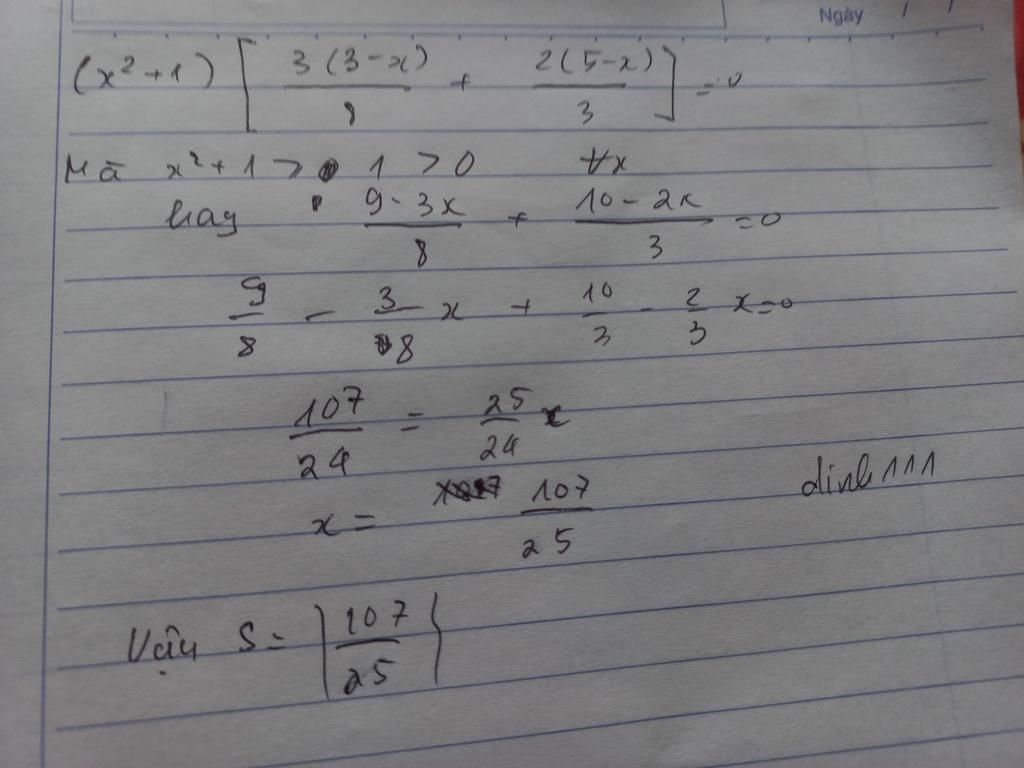 Ngày / /
(x² + 1) [ 3(3-x)/8 + 2(5-x)/3 ] = 0
Mà x² + 1 > 1 > 0 ∀x
hay 9 - 3x/8 + 10 - 2x/3 = 0
9/8 - 3/8 x + 10/3 - 2/3 x = 0
107/24 = 25/24 x
x = 107/25
dinh111
Vậy S = { 107/25 }